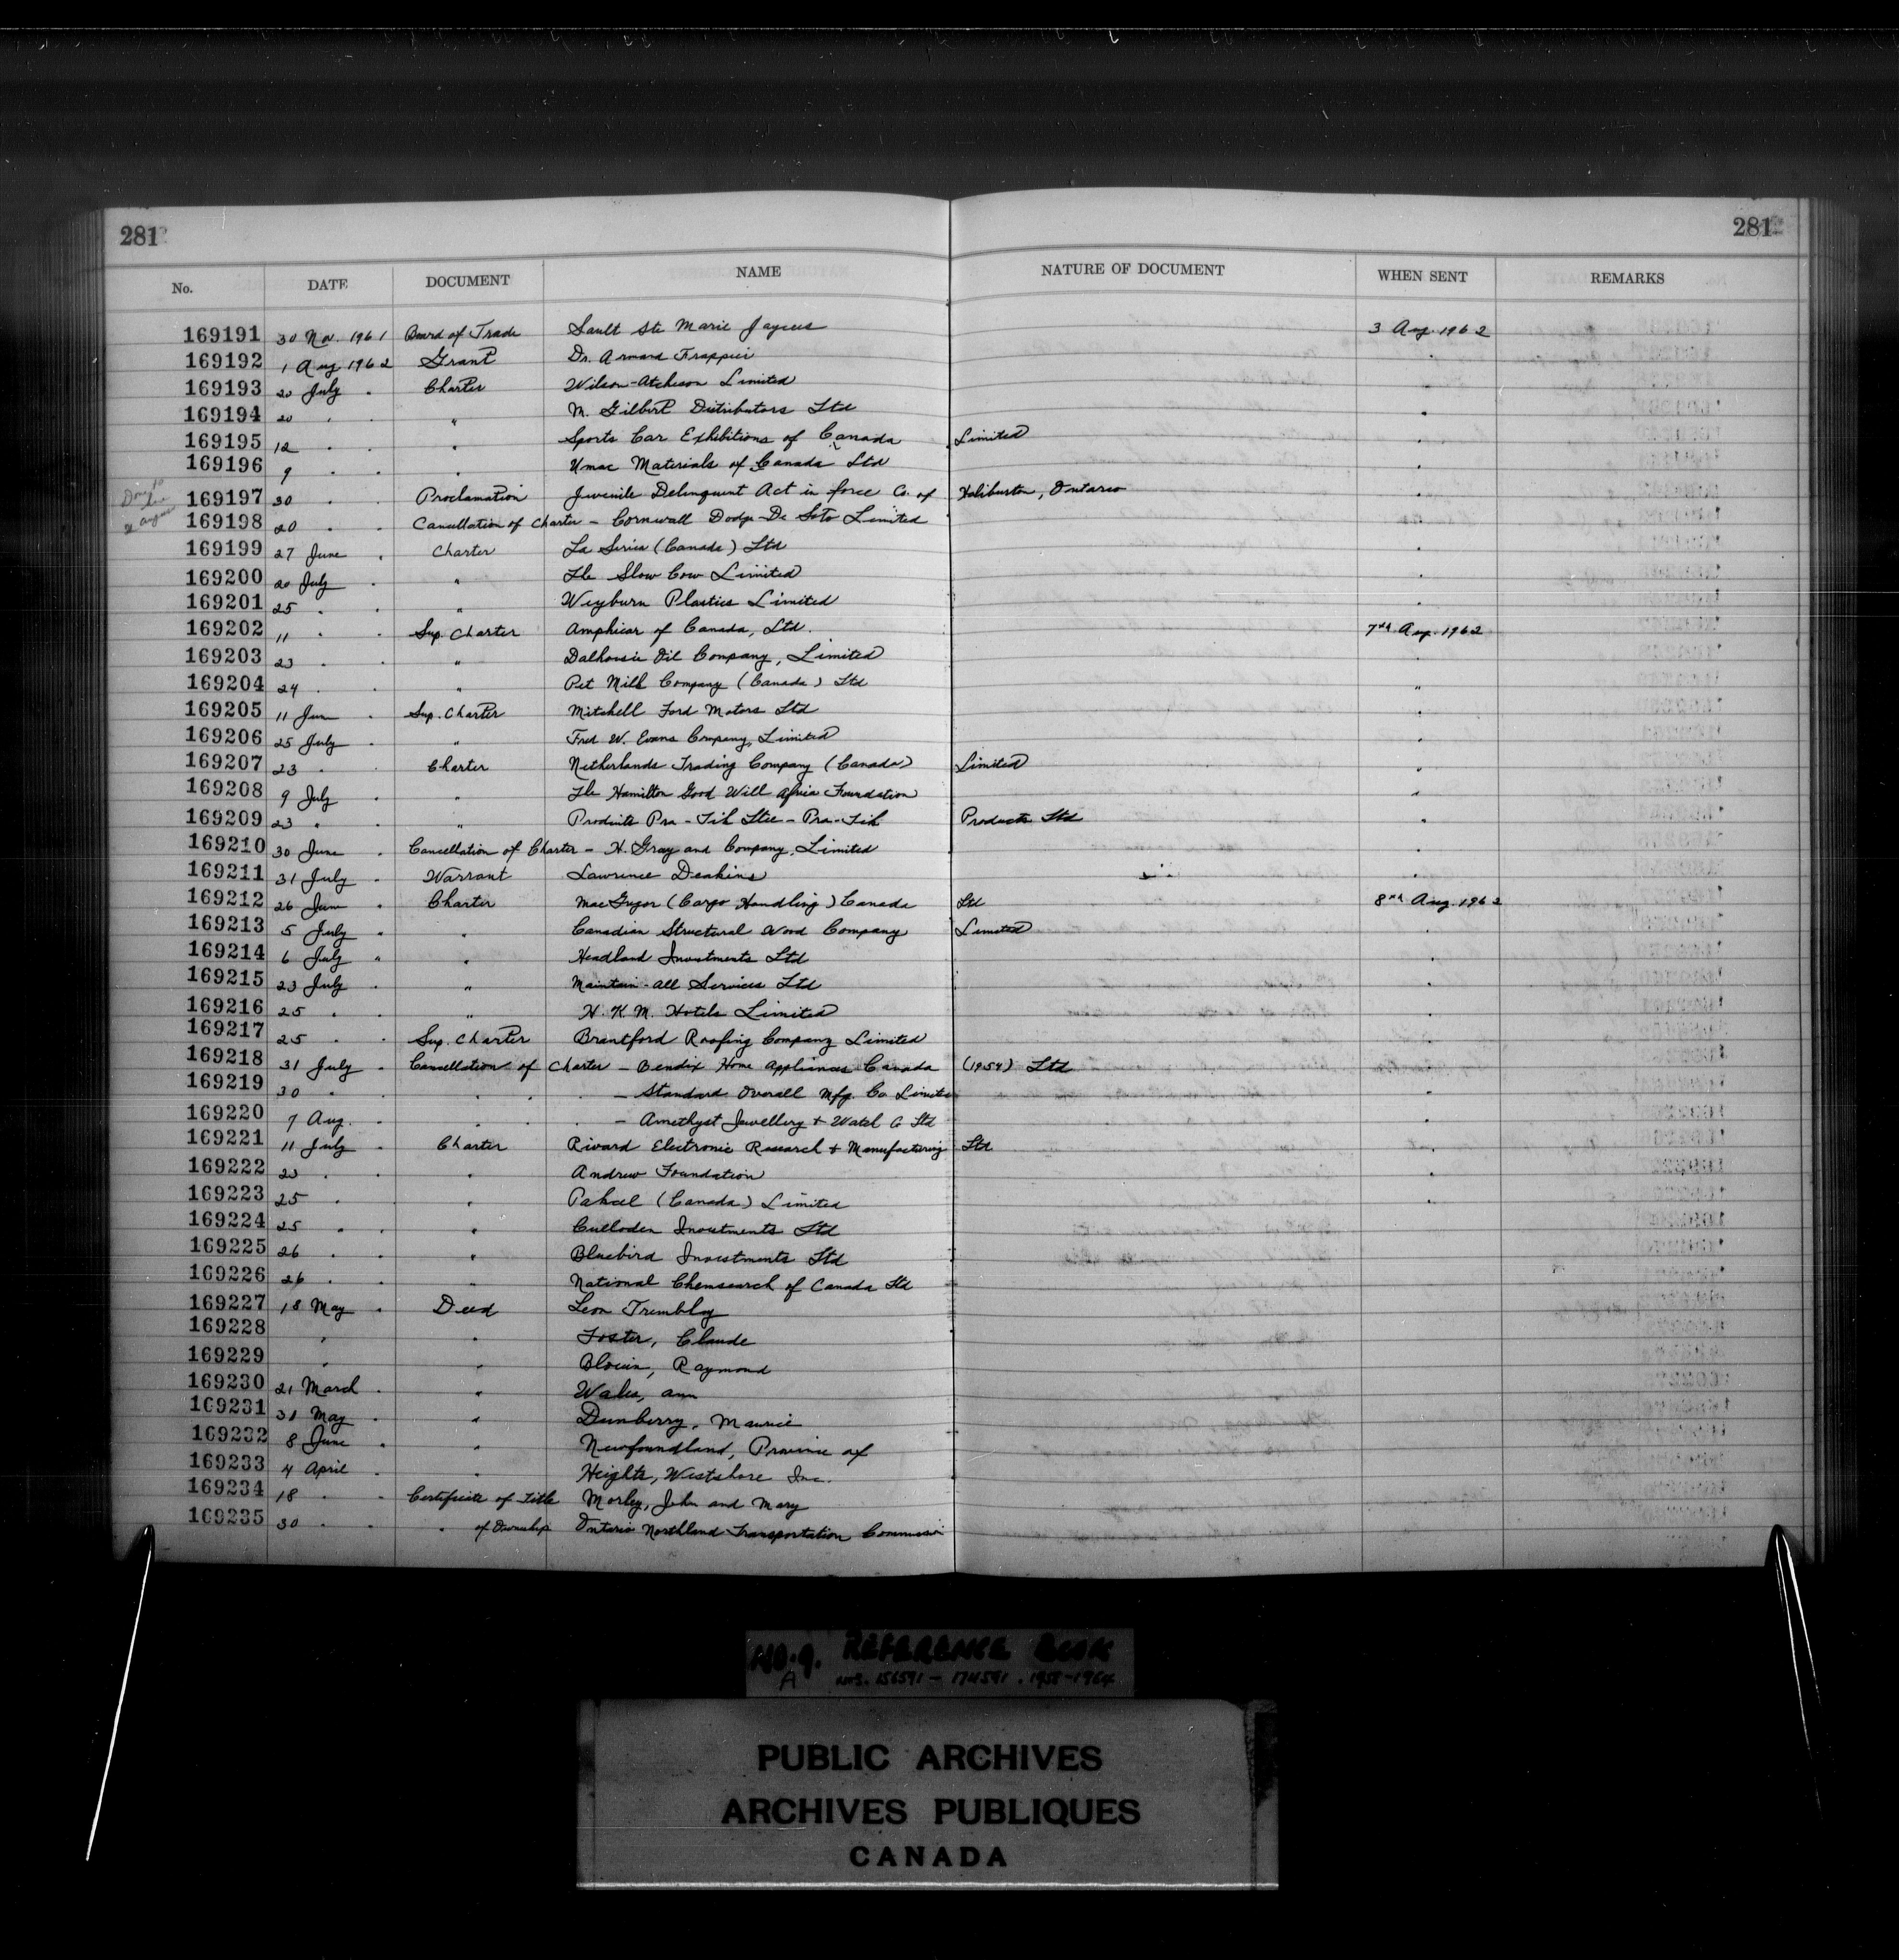 281 281
No. DATE DOCUMENT NAME NATURE OF DOCUMENT WHEN SENT REMARKS
169191 30 Nov. 1961 Board of Trade Sault Ste Marie Jaycees 3 Aug. 1962
169192 1 Aug 1962 Grant Dr. Armand Frappier "
169193 20 July " Charter Wilson-Atcheson Limited "
169194 20 " " " M. Gilbert Distributors Ltd "
169195 12 " " " Sports Car Exhibitions of Canada Limited "
169196 9 " " " Umac Materials of Canada Ltd "
169197 30 " " Proclamation Juvenile Delinquent Act in force Co. of Haliburton, Ontario "
2 August
169198 20 " " Cancellation of Charter - Cornwall Dodge-De Soto Limited "
169199 27 June " Charter La Serica (Canada) Ltd "
169200 20 July " " The Slow Cow Limited "
169201 25 " " " Weyburn Plastics Limited "
169202 11 " " Sup. Charter Amphicar of Canada, Ltd. 7th Aug. 1962
169203 23 " " " Dalhousie Oil Company, Limited "
169204 24 " " " Pet Milk Company (Canada) Ltd "
169205 11 Jun " Sup. Charter Mitchell Ford Motors Ltd "
169206 25 July " " Fred W. Evans Company, Limited "
169207 23 " " Charter Netherlands Trading Company (Canada) Limited "
169208 9 July " " The Hamilton Good Will Africa Foundation "
169209 23 " " " Produits Pra-Tik Ltee - Pra-Tik Products Ltd "
169210 30 June " Cancellation of Charter - H. Gray and Company, Limited "
169211 31 July " Warrant Lawrence Deakins "
169212 26 June " Charter MacGregor (Cargo Handling) Canada Ltd 8th Aug. 1962
169213 5 July " " Canadian Structural Wood Company Limited "
169214 6 July " " Headland Investments Ltd "
169215 23 July " " Maintain-all Services Ltd "
169216 25 " " " H. K. M. Hotels Limited "
169217 25 " " Sup. Charter Brantford Roofing Company Limited "
169218 31 July " Cancellation of Charter - Bendix Home Appliances Canada (1954) Ltd "
169219 30 " " " " " - Standard Overall Mfg. Co Limited "
169220 7 Aug. " " " " - Amethyst Jewellery & Watch Co Ltd "
169221 11 July " Charter Rivard Electronic Research & Manufacturing Ltd "
169222 23 " " " Andrew Foundation "
169223 25 " " " Pakcel (Canada) Limited "
169224 25 " " " Culloden Investments Ltd
169225 26 " " " Bluebird Investments Ltd
169226 26 " " " National Chemsearch of Canada Ltd
169227 18 May " Deed Leon Tremblay
169228 " " Foster, Claude
169229 " " Blouin, Raymond
169230 21 March " " Wales, Ann
169231 31 May " " Dunberry, Maurice
169232 8 June " " Newfoundland, Province of
169233 4 April " " Heights, Westshore Inc.
169234 18 " " Certificate of Title Morley, John and Mary
169235 30 " " " of Ownership Ontario Northland Transportation Commission
NO. 9. REFERENCE BOOK
A NOS. 156591 - 174591 . 1958-1964
PUBLIC ARCHIVES
ARCHIVES PUBLIQUES
CANADA